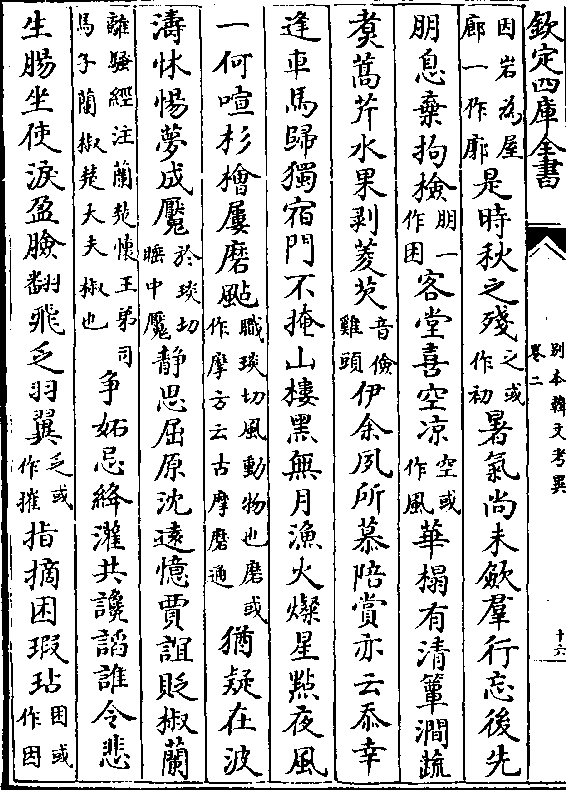 欽定四庫全書
別本韓文考異
卷二
十六
因岩為屋
廊一作廓是時秋之殘之或作初暑氣尚未歛羣行忘後先
朋息棄拘檢朋一作困客堂喜空涼空或作風華榻有清簟澗蔬
煑蒿芹水果剥菱芡音儉雞頭伊余夙所慕陪賞亦云忝幸
逢車馬歸獨宿門不掩山樓黑無月漁火燦星㸃夜風
一何喧杉檜屢磨颭職琰切風動物也磨或作摩方云古摩磨通猶疑在波
濤怵惕夢成魘於琰切睡中魘靜思屈原沈遠憶賈誼貶椒蘭
離騷經注蘭楚懷王弟司馬子蘭椒楚大夫椒也爭妬忌絳灌共讒諂誰令悲
生腸坐使淚盈臉翻飛乏羽翼乏或作摧指摘困瑕玷困或作因